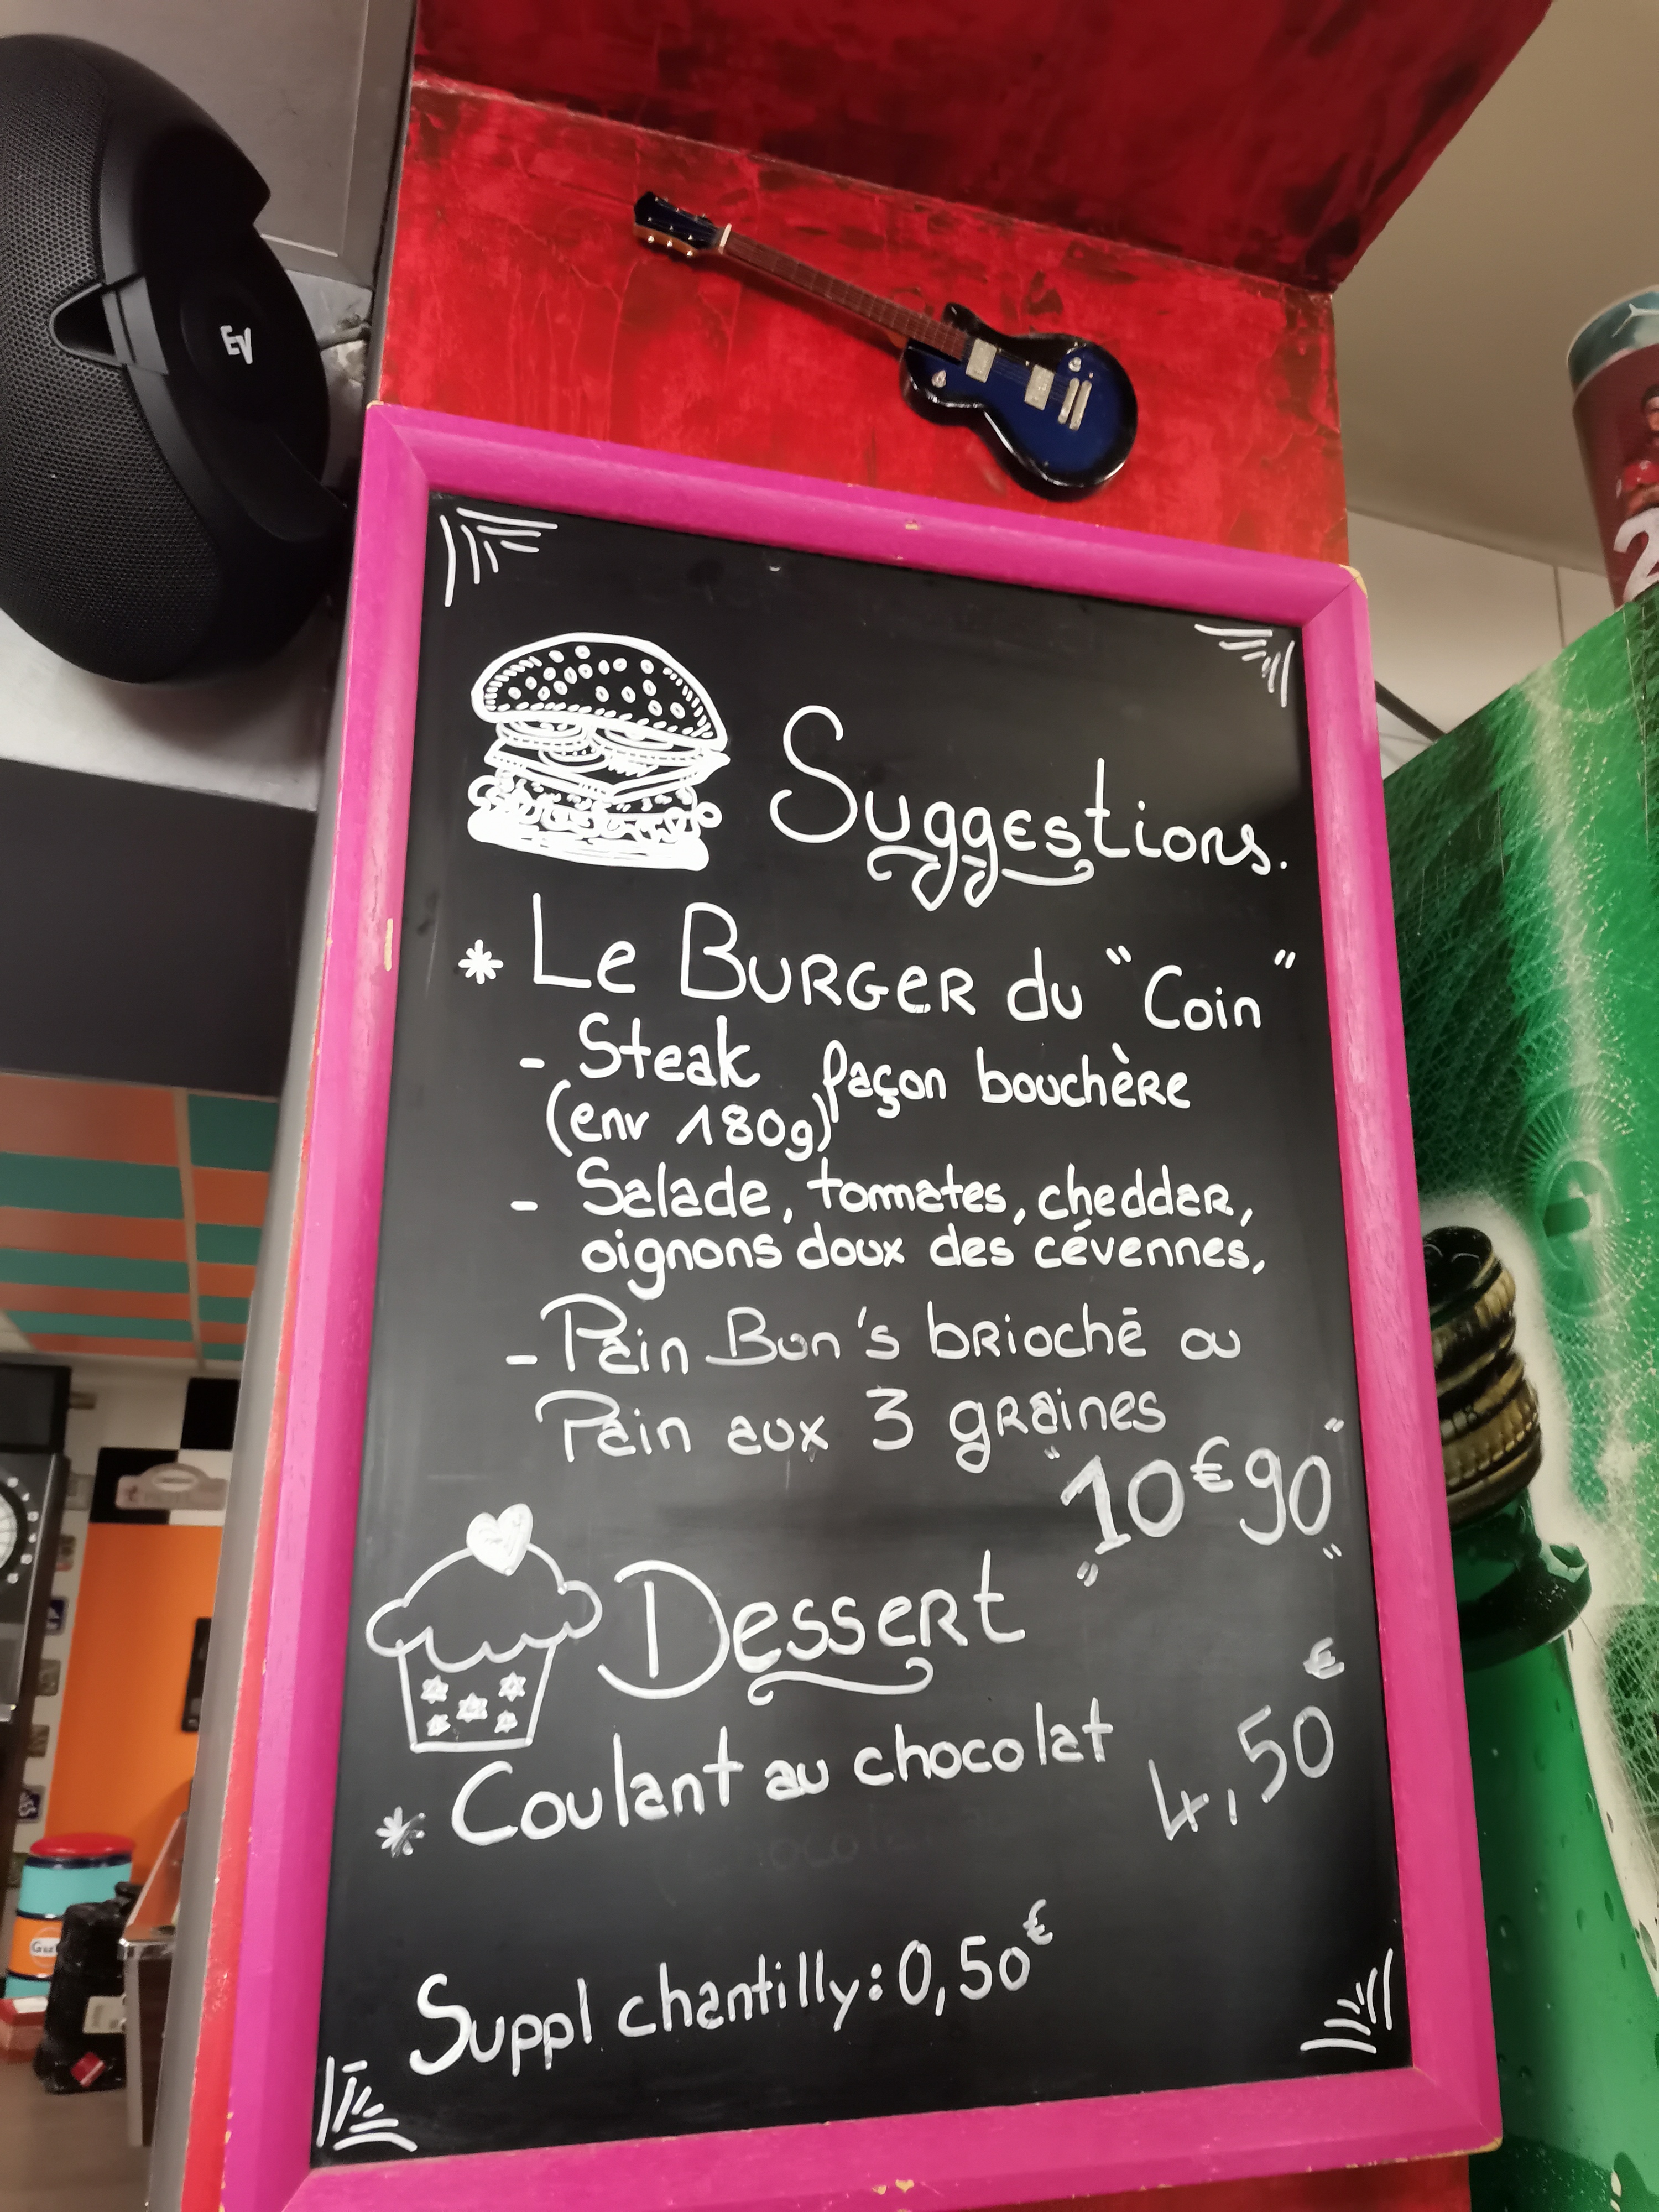 EV
Suggestions.
* Le BURGER du "Coin"
- Steak façon bouchère
(env 180g)
- Salade, tomates, cheddar,
oignons doux des cévennes,
- Pain Bun's brioché ou
Pain aux 3 graines
"10€90"
Dessert
* Coulant au chocolat 4,50€
Suppl chantilly: 0,50€
2